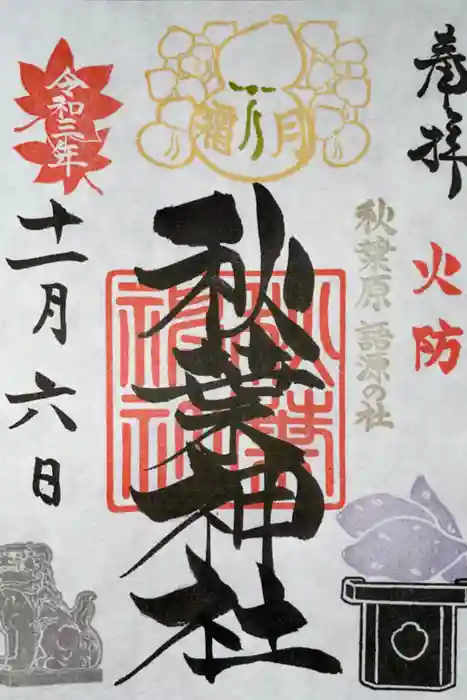 奉拝
火防
秋葉原 語源の社
霜月
秋葉神社
秋葉
神社
令和三年
十一月六日